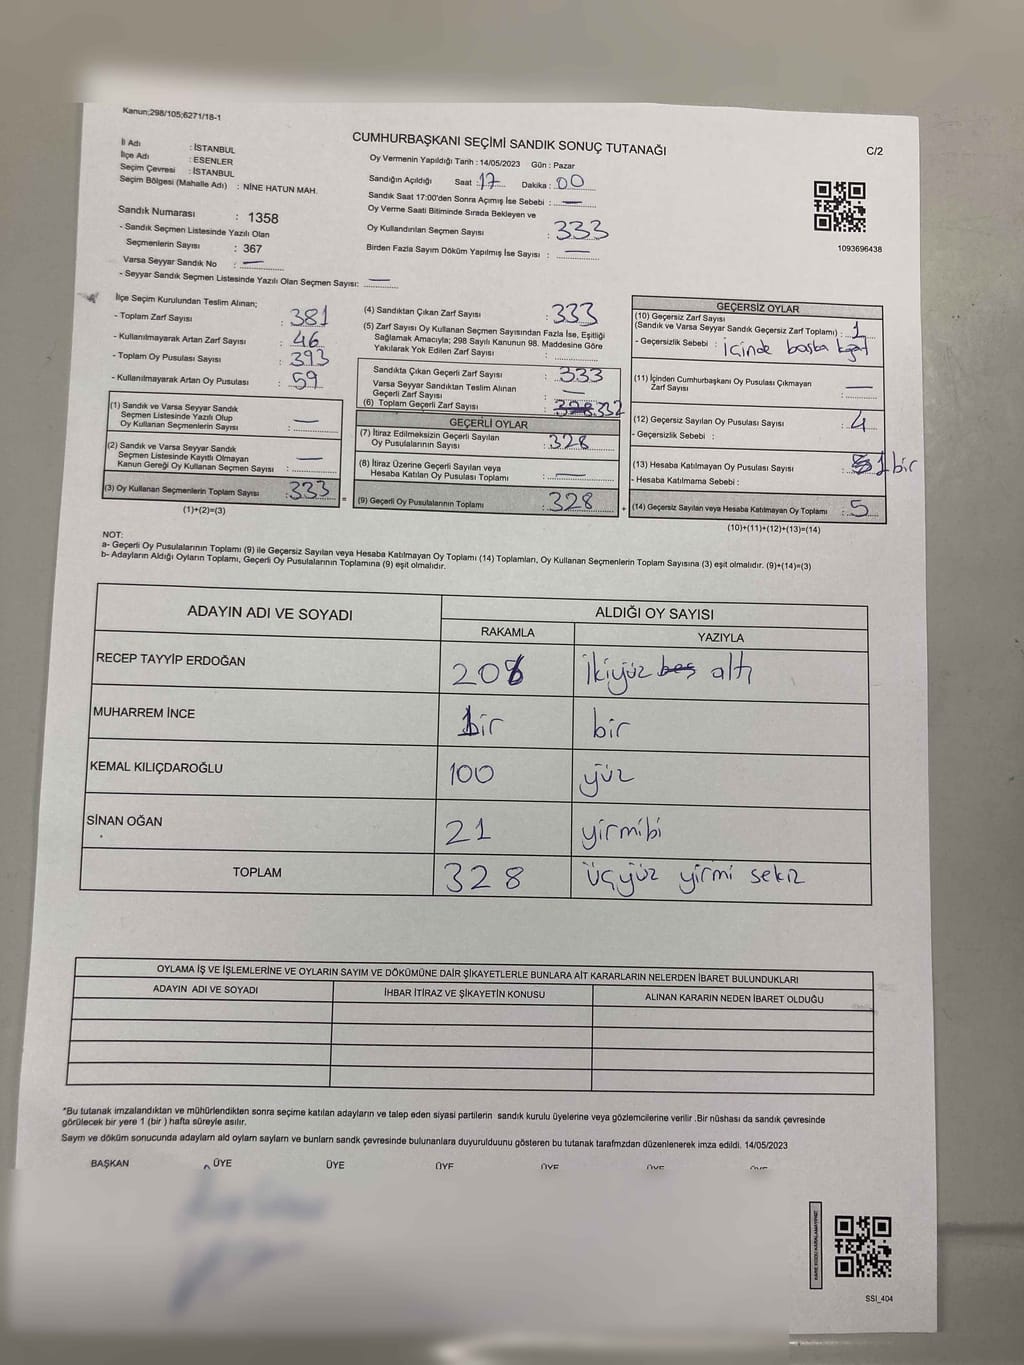 Kanun;298/105;6271/18-1
CUMHURBAŞKANI SEÇİMİ SANDIK SONUÇ TUTANAĞI
C/2
İl Adı : İSTANBUL
İlçe Adı : ESENLER
Seçim Çevresi : İSTANBUL
Seçim Bölgesi (Mahalle Adı) : NİNE HATUN MAH.
Oy Vermenin Yapıldığı Tarih : 14/05/2023 Gün : Pazar
Sandığın Açıldığı Saat : 17 Dakika : 00
Sandık Saat 17:00'den Sonra Açımış İse Sebebi : —
Oy Verme Saati Bitiminde Sırada Bekleyen ve
Oy Kullandırılan Seçmen Sayısı : 333
Birden Fazla Sayım Döküm Yapılmış İse Sayısı : —
1093696438
Sandık Numarası : 1358
- Sandık Seçmen Listesinde Yazılı Olan
Seçmenlerin Sayısı : 367
Varsa Seyyar Sandık No : —
- Seyyar Sandık Seçmen Listesinde Yazılı Olan Seçmen Sayısı: —
İlçe Seçim Kurulundan Teslim Alınan;
- Toplam Zarf Sayısı : 381
- Kullanılmayarak Artan Zarf Sayısı : 46
- Toplam Oy Pusulası Sayısı : 393
- Kullanılmayarak Artan Oy Pusulası : 59
(1) Sandık ve Varsa Seyyar Sandık
Seçmen Listesinde Yazılı Olup
Oy Kullanan Seçmenlerin Sayısı : —
(2) Sandık ve Varsa Seyyar Sandık
Seçmen Listesinde Kayıtlı Olmayan
Kanun Gereği Oy Kullanan Seçmen Sayısı : —
(3) Oy Kullanan Seçmenlerin Toplam Sayısı : 333 =
(1)+(2)=(3)
(4) Sandıktan Çıkan Zarf Sayısı : 333
(5) Zarf Sayısı Oy Kullanan Seçmen Sayısından Fazla İse, Eşitliği
Sağlamak Amacıyla; 298 Sayılı Kanunun 98. Maddesine Göre
Yakılarak Yok Edilen Zarf Sayısı :
Sandıkta Çıkan Geçerli Zarf Sayısı : 333
Varsa Seyyar Sandıktan Teslim Alınan
Geçerli Zarf Sayısı : —
(6) Toplam Geçerli Zarf Sayısı : 328 332
GEÇERLİ OYLAR
(7) İtiraz Edilmeksizin Geçerli Sayılan
Oy Pusulalarının Sayısı : 328
(8) İtiraz Üzerine Geçerli Sayılan veya
Hesaba Katılan Oy Pusulası Toplamı : —
(9) Geçerli Oy Pusulalarının Toplamı : 328 +
GEÇERSİZ OYLAR
(10) Geçersiz Zarf Sayısı
(Sandık ve Varsa Seyyar Sandık Geçersiz Zarf Toplamı) : 1
- Geçersizlik Sebebi : içinde başka kağat
(11) İçinden Cumhurbaşkanı Oy Pusulası Çıkmayan
Zarf Sayısı : —
(12) Geçersiz Sayılan Oy Pusulası Sayısı : 4
- Geçersizlik Sebebi :
(13) Hesaba Katılmayan Oy Pusulası Sayısı : 1 bir
- Hesaba Katılmama Sebebi :
(14) Geçersiz Sayılan veya Hesaba Katılmayan Oy Toplamı : 5
(10)+(11)+(12)+(13)=(14)
NOT:
a- Geçerli Oy Pusulalarının Toplamı (9) ile Geçersiz Sayılan veya Hesaba Katılmayan Oy Toplamı (14) Toplamları, Oy Kullanan Seçmenlerin Toplam Sayısına (3) eşit olmalıdır. (9)+(14)=(3)
b- Adayların Aldığı Oyların Toplamı, Geçerli Oy Pusulalarının Toplamına (9) eşit olmalıdır.
ADAYIN ADI VE SOYADI ALDIĞI OY SAYISI
RAKAMLA YAZIYLA
RECEP TAYYİP ERDOĞAN 206 ikiyüz beş altı
MUHARREM İNCE 1bir bir
KEMAL KILIÇDAROĞLU 100 yüz
SİNAN OĞAN 21 yirmibi
TOPLAM 328 üçyüz yirmi sekiz
OYLAMA İŞ VE İŞLEMLERİNE VE OYLARIN SAYIM VE DÖKÜMÜNE DAİR ŞİKAYETLERLE BUNLARA AİT KARARLARIN NELERDEN İBARET BULUNDUKLARI
ADAYIN ADI VE SOYADI İHBAR İTİRAZ VE ŞİKAYETİN KONUSU ALINAN KARARIN NEDEN İBARET OLDUĞU
*Bu tutanak imzalandıktan ve mühürlendikten sonra seçime katılan adayların ve talep eden siyasi partilerin sandık kurulu üyelerine veya gözlemcilerine verilir .Bir nüshası da sandık çevresinde
görülecek bir yere 1 (bir ) hafta süreyle asılır.
Saym ve döküm sonucunda adaylarn ald oylarn saylarn ve bunlarn sandk çevresinde bulunanlara duyurulduunu gösteren bu tutanak tarafmzdan düzenlenerek imza edildi. 14/05/2023
BAŞKAN ÜYE ÜYE ÜYE ÜYE ÜYE ÜYE
SSI_404